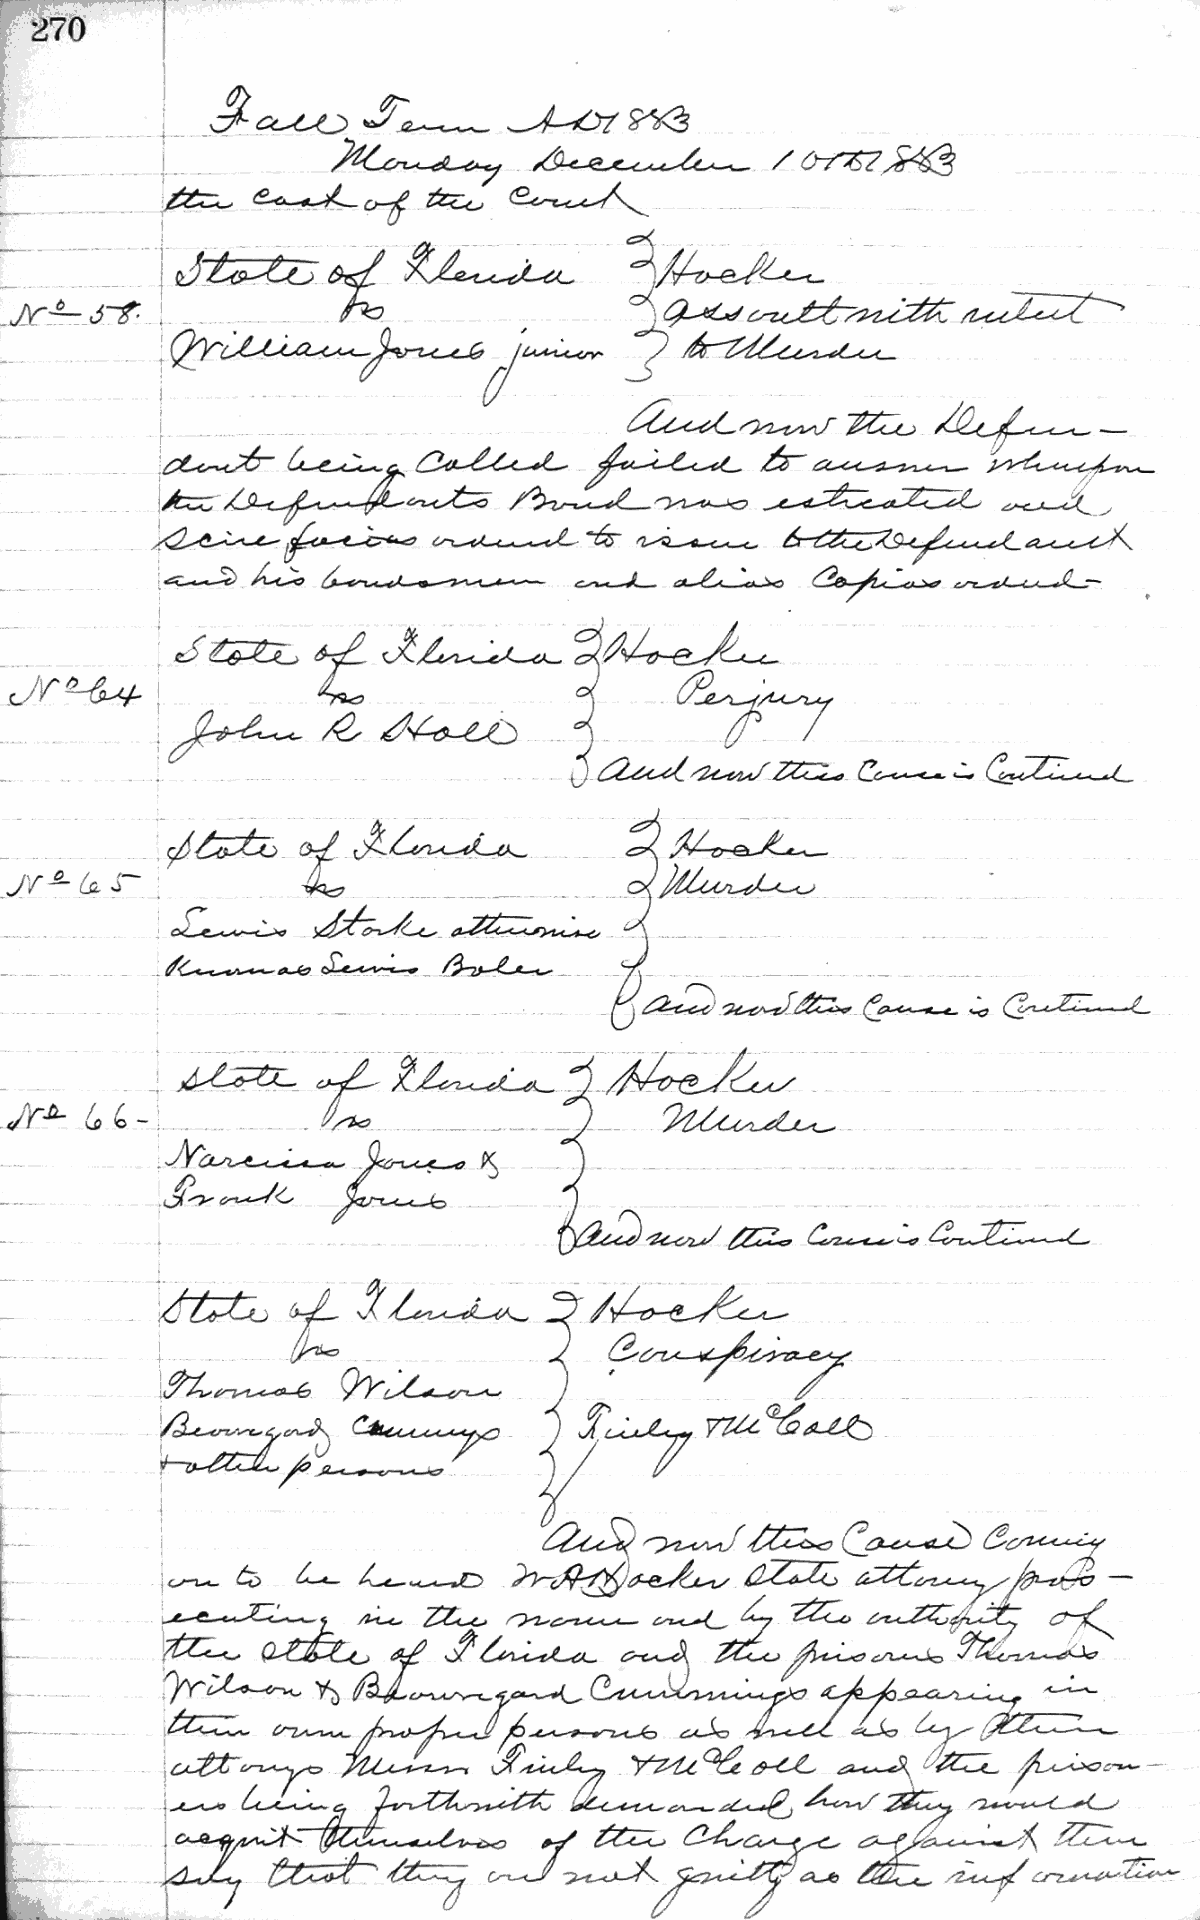 270
Fall Term AD 1883
Monday December 10th 1883
the cost of the Court
State of Florida Hocker
No 58. vs assault with intent
William Jones junior to Murder
And now the Defen-
dant being Called failed to answer whereupon
the Defendants Bond was estreated and
Scire facias ordered to issue to the Defendant
and his bondsmen and alias Capias ordered-
State of Florida Hocker
No 64 vs Perjury
John R Hall
And now this Cause is Continued
State of Florida Hocker
No 65 vs Murder
Lewis Starke otherwise
Known as Lewis Baler
And now this Cause is Continued
State of Florida Hocker
No 66- vs Murder
Narcissa Jones &
Frank Jones
And now this Cause is Continued
State of Florida Hocker
vs Conspiracy
Thomas Wilson
Beauregard Cummings Finley & McCall
+ other persons
And now this Cause Coming
on to be heard W A Hocker State attorney pros-
ecuting in the name and by the authority of
the State of Florida and the prisoners Thomas
Wilson & Beauregard Cummings appearing in
their own proper persons as well as by their
attorneys Messrs Finley & McCall and the prison-
ers being forthwith demanded how they would
acquit themselves of the Charge against them
say that they are not guilty as the information